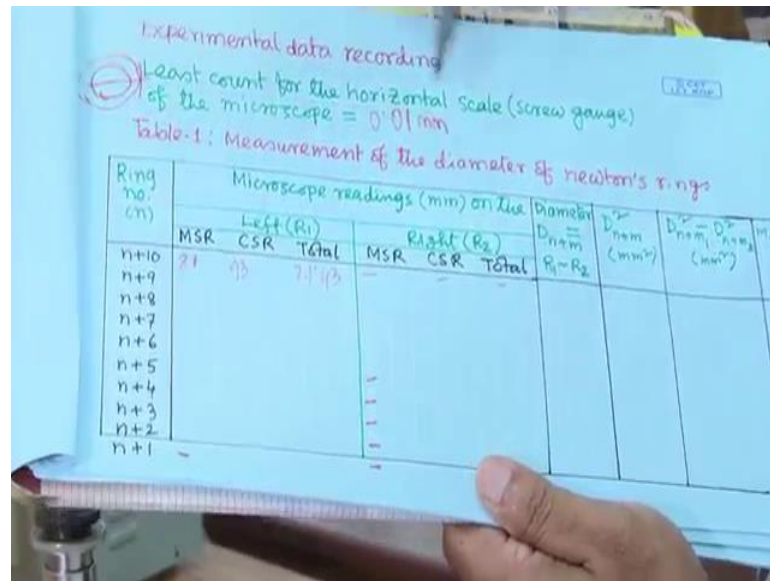 Experimental data recording
Least count for the horizontal scale (screw gauge)
of the microscope = 0.01 mm
Table-1: Measurement of the diameter of newton's rings
Ring no. (n)
Microscope readings (mm) on the
Left (R1)
MSR CSR Total
Right (R2)
MSR CSR Total
Diameter
Dn+m
=
R1~R2
D²n+m
(mm²)
D²n+m1 - D²n+m2
(mm²)
M
n+10
n+9
n+8
n+7
n+6
n+5
n+4
n+3
n+2
n+1